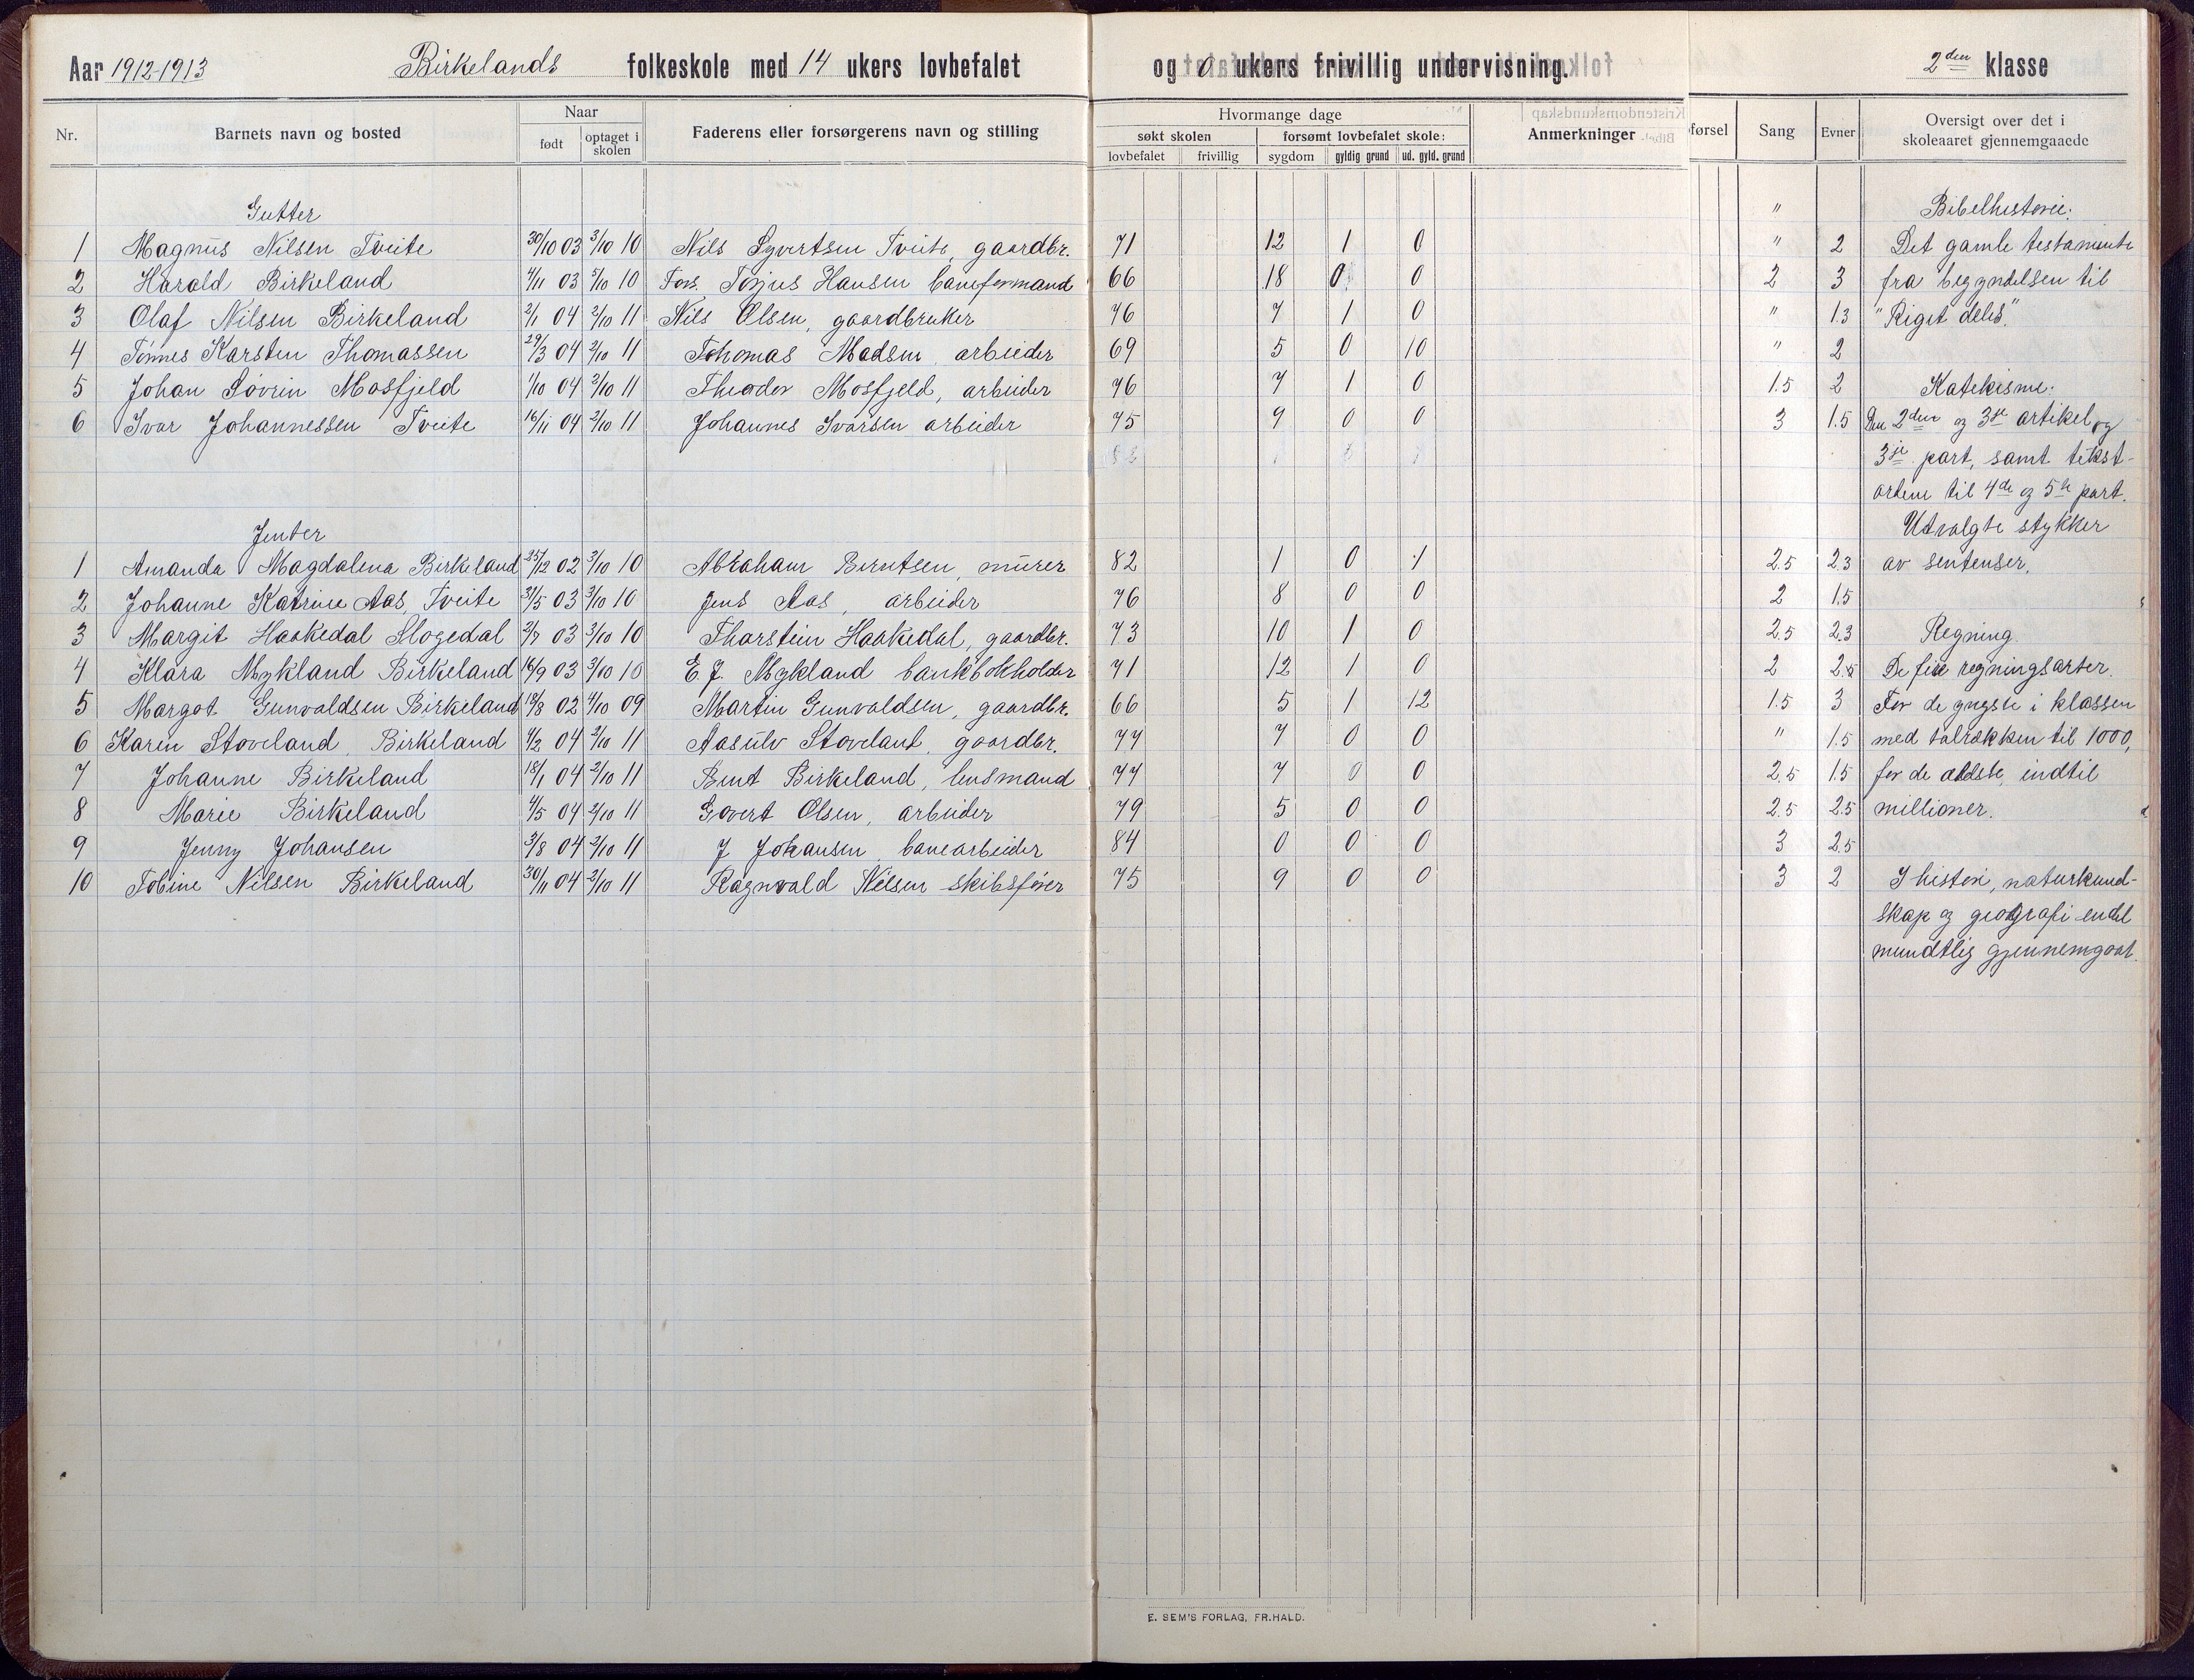 Aar 1912-1913 Birkelands folkeskole med 14 ukers lovbefalet og 0 ukers frivillig undervisning. 2den klasse
Nr. Barnets navn og bosted Naar født optaget i skolen Faderens eller forsørgerens navn og stilling
Hvormange dage
søkt skolen forsømt lovbefalet skole: Anmerkninger
lovbefalet frivillig sygdom gyldig grund ud. gyld. grund
førsel Sang Evner Oversigt over det i skoleaaret gjennemgaaede
Gutter " Bibelhistorie:
1 Magnus Nilsen Tveite 30/10 03 3/10 10 Nils Syvertsen Tveite, gaardbr. 71 12 1 0 " 2 Det gamle testamente
2 Harald Birkeland 4/11 03 5/10 10 Fors. Torjus Hansen baneformand 66 18 0 0 2 3 fra begyndelsen til
3 Olaf Nilsen Birkeland 2/1 04 2/10 11 Nils Olsen, gaardbruker 76 7 1 0 " 1.3 "Riget deles".
4 Tønnes Karsten Thomassen 29/3 04 2/10 11 Thomas Madsen arbeider 69 5 0 10 " 2
5 Johan Søvrin Mosfjeld 1/10 04 2/10 11 Theodor Mosfjeld, arbeider 76 7 1 0 1.5 2 Katekisme:
6 Ivar Johannessen Tveite 16/11 04 2/10 11 Johannes Ivarsen arbeider 75 9 0 0 3 1.5 Den 2den og 3je artikel og
3je part, samt tekst-
ordene til 4de og 5te part.
Jenter Utvalgte stykker
1 Amanda Magdalena Birkeland 25/12 02 3/10 10 Abraham Berntsen, murer 82 1 0 1 2.5 2.3 av sentenser.
2 Johanne Katrine Aas, Tveite 31/5 03 3/10 10 Jens Aas, arbeider 76 8 0 0 2 1.5
3 Margit Haakedal Slogedal 2/7 03 3/10 10 Thorstein Haakedal, gaardbr. 73 10 1 0 2.5 2.3 Regning.
4 Klara Mykland Birkeland 16/9 03 3/10 10 E. J. Mykland bankbokholder 71 12 1 0 2 2.5 De fire regningsarter.
5 Margot Gunvaldsen Birkeland 18/8 02 4/10 09 Martin Gunvaldsen, gaardbr. 66 5 1 12 1.5 3 For de yngste i klassen
6 Karen Stoveland, Birkeland 4/2 04 2/10 11 Aasulv Stoveland, gaardbr. 77 7 0 0 " 1.5 med talrækken til 1000,
7 Johanne Birkeland 18/1 04 2/10 11 Bent Birkeland, lensmand 77 7 0 0 2.5 1.5 for de ældste, indtil
8 Marie Birkeland 4/5 04 2/10 11 Govert Olsen, arbeider 79 5 0 0 2.5 2.5 millioner.
9 Jenny Johansen 3/8 04 2/10 11 J Johansen, banearbeider 84 0 0 0 3 2.5
10 Tobine Nilsen Birkeland 30/11 04 2/10 11 Ragnvald Nilsen skibsfører 75 9 0 0 3 2 I histori, naturkund-
skap og geografi endel
mundtlig gjennemgaat.
E. SEM'S FORLAG, FR.HALD.